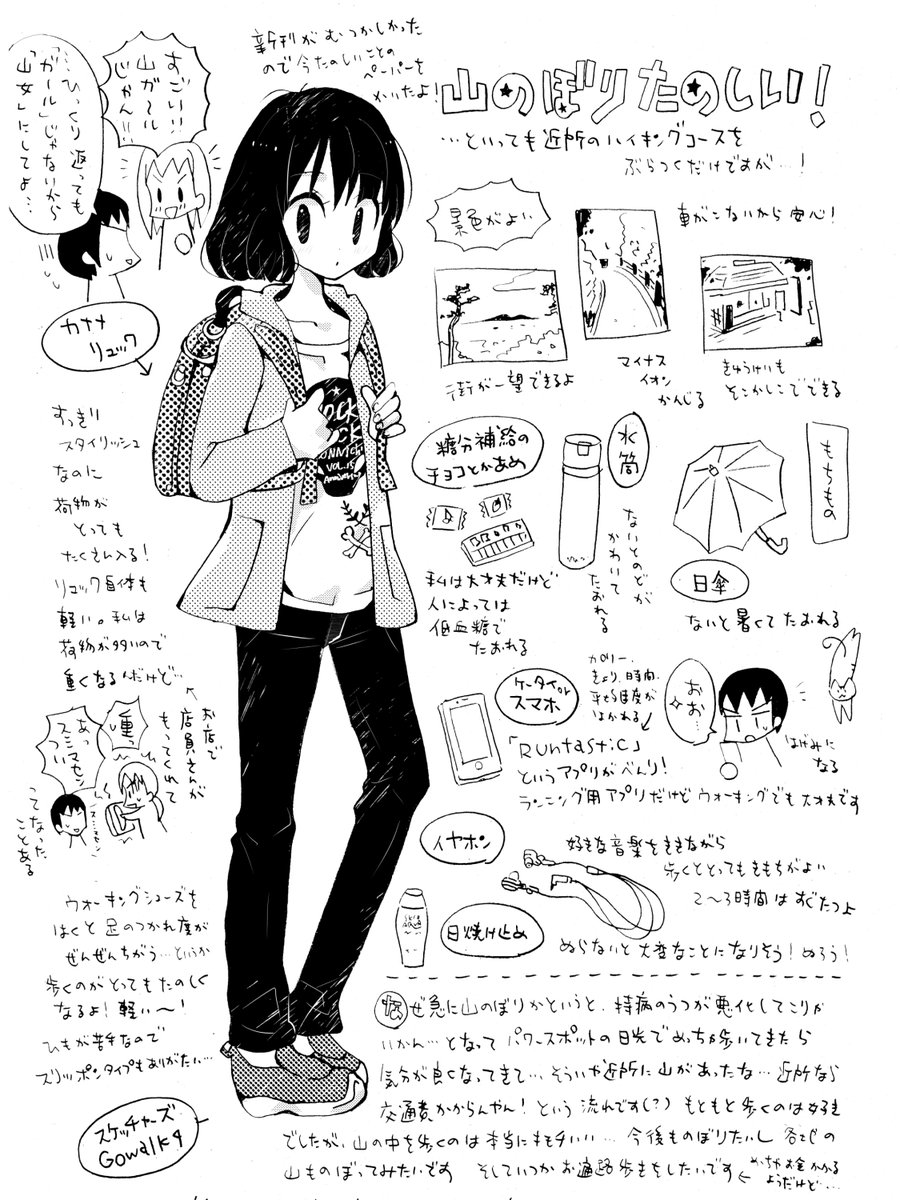 新刊がむつかしかった
ので今たのしいことの
ペーパーを
かいたよ!
山のぼりたのしい!
…といっても近所のハイキングコースを
ぶらつくだけですが…!
すごい!!
山ガール
じゃん!!
…ひっくり返っても
「ガール」じゃないから
「山女」にしてよ…
カナナ
リュック
すっきり
スタイリッシュ
なのに
荷物が
とっても
たくさん入る!
リュック自体も
軽い。私は
荷物が多いので
重くなるんだけど…
お店で
店員さんが
もってくれて
重っ
あっ
スミマセン
つい
ス…スミマセン
ってなった
ことある
ウォーキングシューズを
はくと足のつかれ度が
ぜんぜんちがう…というか
歩くのがとってもたのしく
なるよ!軽い〜!
ひもが苦手なので
スリッポンタイプもありがたい…
スケッチャーズ
Gowalk4
景色がよい
街が一望できるよ
マイナス
イオン
かんじる
車がこないから安心!
きゅうけいも
そこかしこでできる
もちもの
日傘
ないと暑くてたおれる
水筒
ないとのどが
かわいて
たおれる
糖分補給の
チョコとかあめ
私は大丈夫だけど
人によっては
低血糖で
たおれる
ケータイor
スマホ
カロリー、
きょり、時間、
平均速度が
はかれる
「Runtastic」
というアプリがべんり!
ランニング用アプリだけどウォーキングでも大丈夫です
おお…
はげみに
なる
イヤホン
好きな音楽をききながら
歩くととってもきもちがよい
2〜3時間はすぐたつよ
日焼け止め
ぬらないと大変なことになりそう!ぬろう!
なぜ急に山のぼりかというと、持病のうつが悪化してこりゃ
いかん…となってパワースポットの日光でめっちゃ歩いてきたら
気分が良くなってきて…、そういや近所に山があったな…近所なら
交通費かからんやん!という流れです(?)もともと歩くのは好き
でしたが、山の中を歩くのは本当にキモチいい…今後ものぼりたいし各地の
山ものぼってみたいです そしていつかお遍路歩きをしたいです
←めっちゃお金かかる
ようだけど…